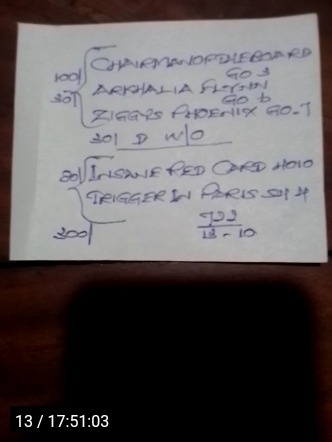 CHAIRMANOFTHEBOARD
100/ GO 3
30/ ARKHALIA FLYNN
GO 6
ZIGGYS PHOENIX GO-7
30/ D W/O
80/ INSANE RED CARD HO10
TRIGGER IN PARIS SH 4
300/ 722
13-10
13 / 17:51:03